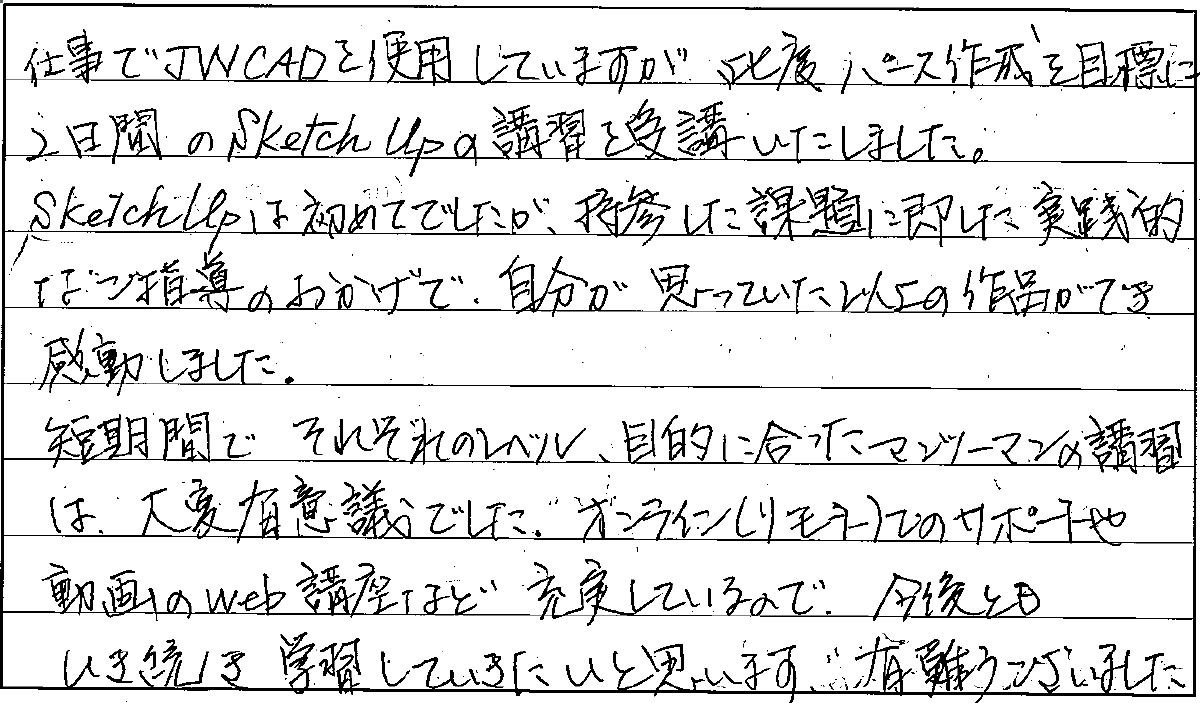 仕事でJWCADを使用していますが、此度パース作成を目標に
2日間のSketchUpの講習を受講いたしました。
SketchUpは初めてでしたが、持参した課題に即した実践的
なご指導のおかげで、自分が思っていた以上の作品ができ
感動しました。
短期間でそれぞれのレベル、目的に合ったマンツーマンの講習
は、大変有意議でした。オンライン(リモート)でのサポートや
動画のWeb講座など充実しているので、今後とも
ひき続き学習していきたいと思います。有難うございました